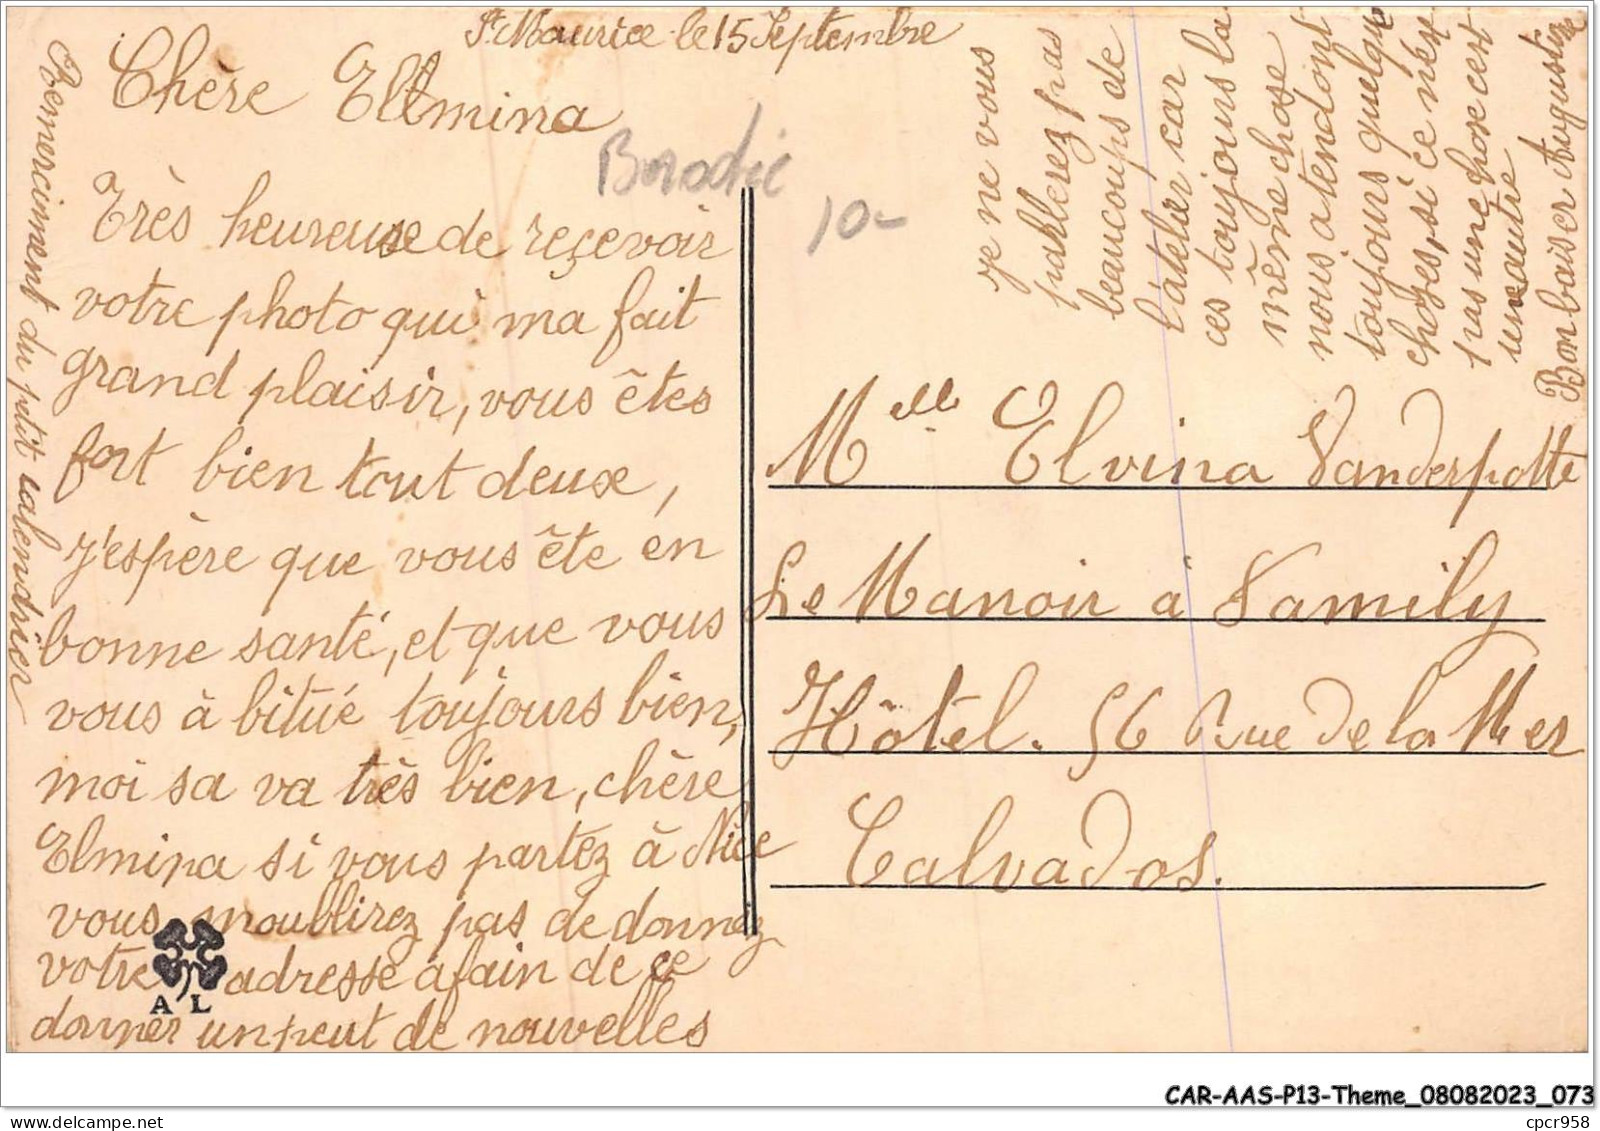 St Maurice le 15 Septembre
Chère Ellmina
Très heureuse de reçevoir
votre photo qui ma fait
grand plaisir, vous êtes
fort bien tout deuse,
j'espère que vous ête en
bonne santé, et que vous
vous à bitué toujours bien,
moi sa va très bien, chère
Elmina si vous partez à Nice
vous moublirez pas de donnez
votre adresse àfain de ce
donner un peut de nouvelles
A L
Remerciment du petit calendrier
je ne vous
parlerez pas
beaucoups de
l'atelier car
ces toujours la
même chose
nous atendont
toujours quelque
choses, si ce n'est
pas une chose cest
une autre
Bon baiser Augustine
Brodée
10-
Melle Elvina Vanderpotte
Le Manoir à Vamily
Hôtel. 56 Rue de la Mer
Calvados.
CAR-AAS-P13-Theme_08082023_073
delcampe.net
cpcr958